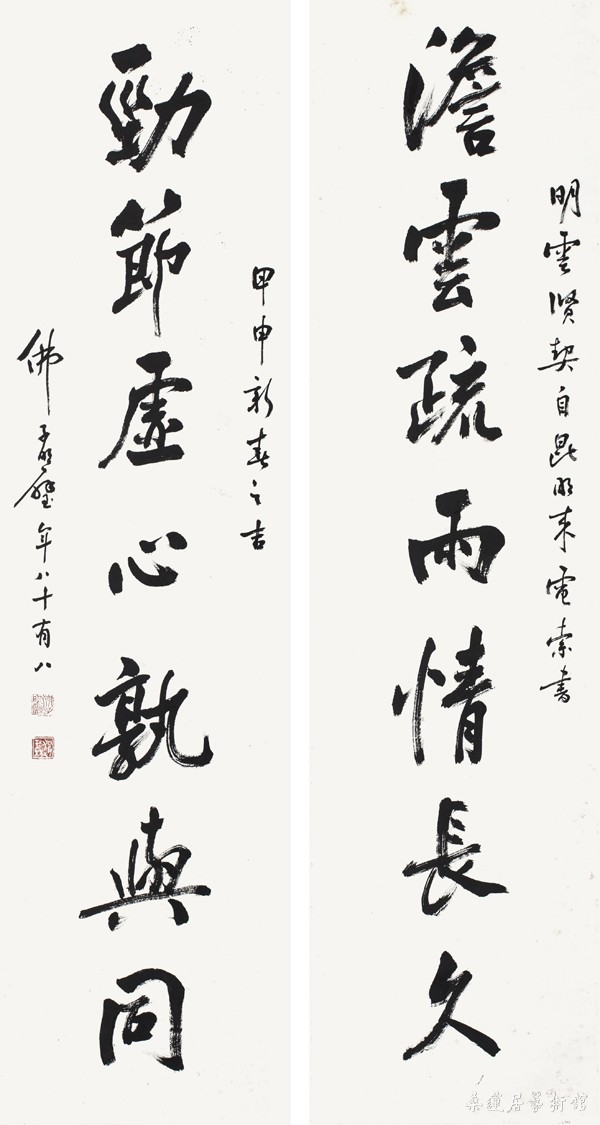 明雲賢契自昆明來電索書
澹雲疏雨情長久
甲申新春之吉
勁節虛心孰與同
佛 年八十有八
桑蓮居藝術館